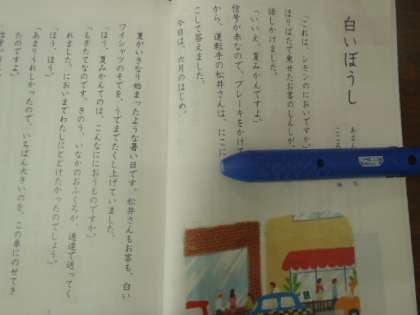 白いぼうし
「これは、レモンのにおいですか。」
ほりばたで乗せたお客のしんしが、
話しかけました。
「いいえ、夏みかんですよ。」
信号が赤なので、ブレーキをかけて
から、運転手の松井さんは、にこに
こして答えました。
今日は、六月のはじめ。
夏がいきなり始まったような暑い日です。松井さんもお客も、白い
ワイシャツのそでを、うでまでたくし上げていました。
「ほう、夏みかんてのは、こんなににおうものですか。」
「もぎたてなのです。きのう、いなかのおふくろが、速達で送ってく
れました。においまでわたしにとどけたかったのでしょう。」
「ほう、ほう。」
「あまりうれしかったので、いちばん大きいのを、この車にのせてき
たのですよ。」